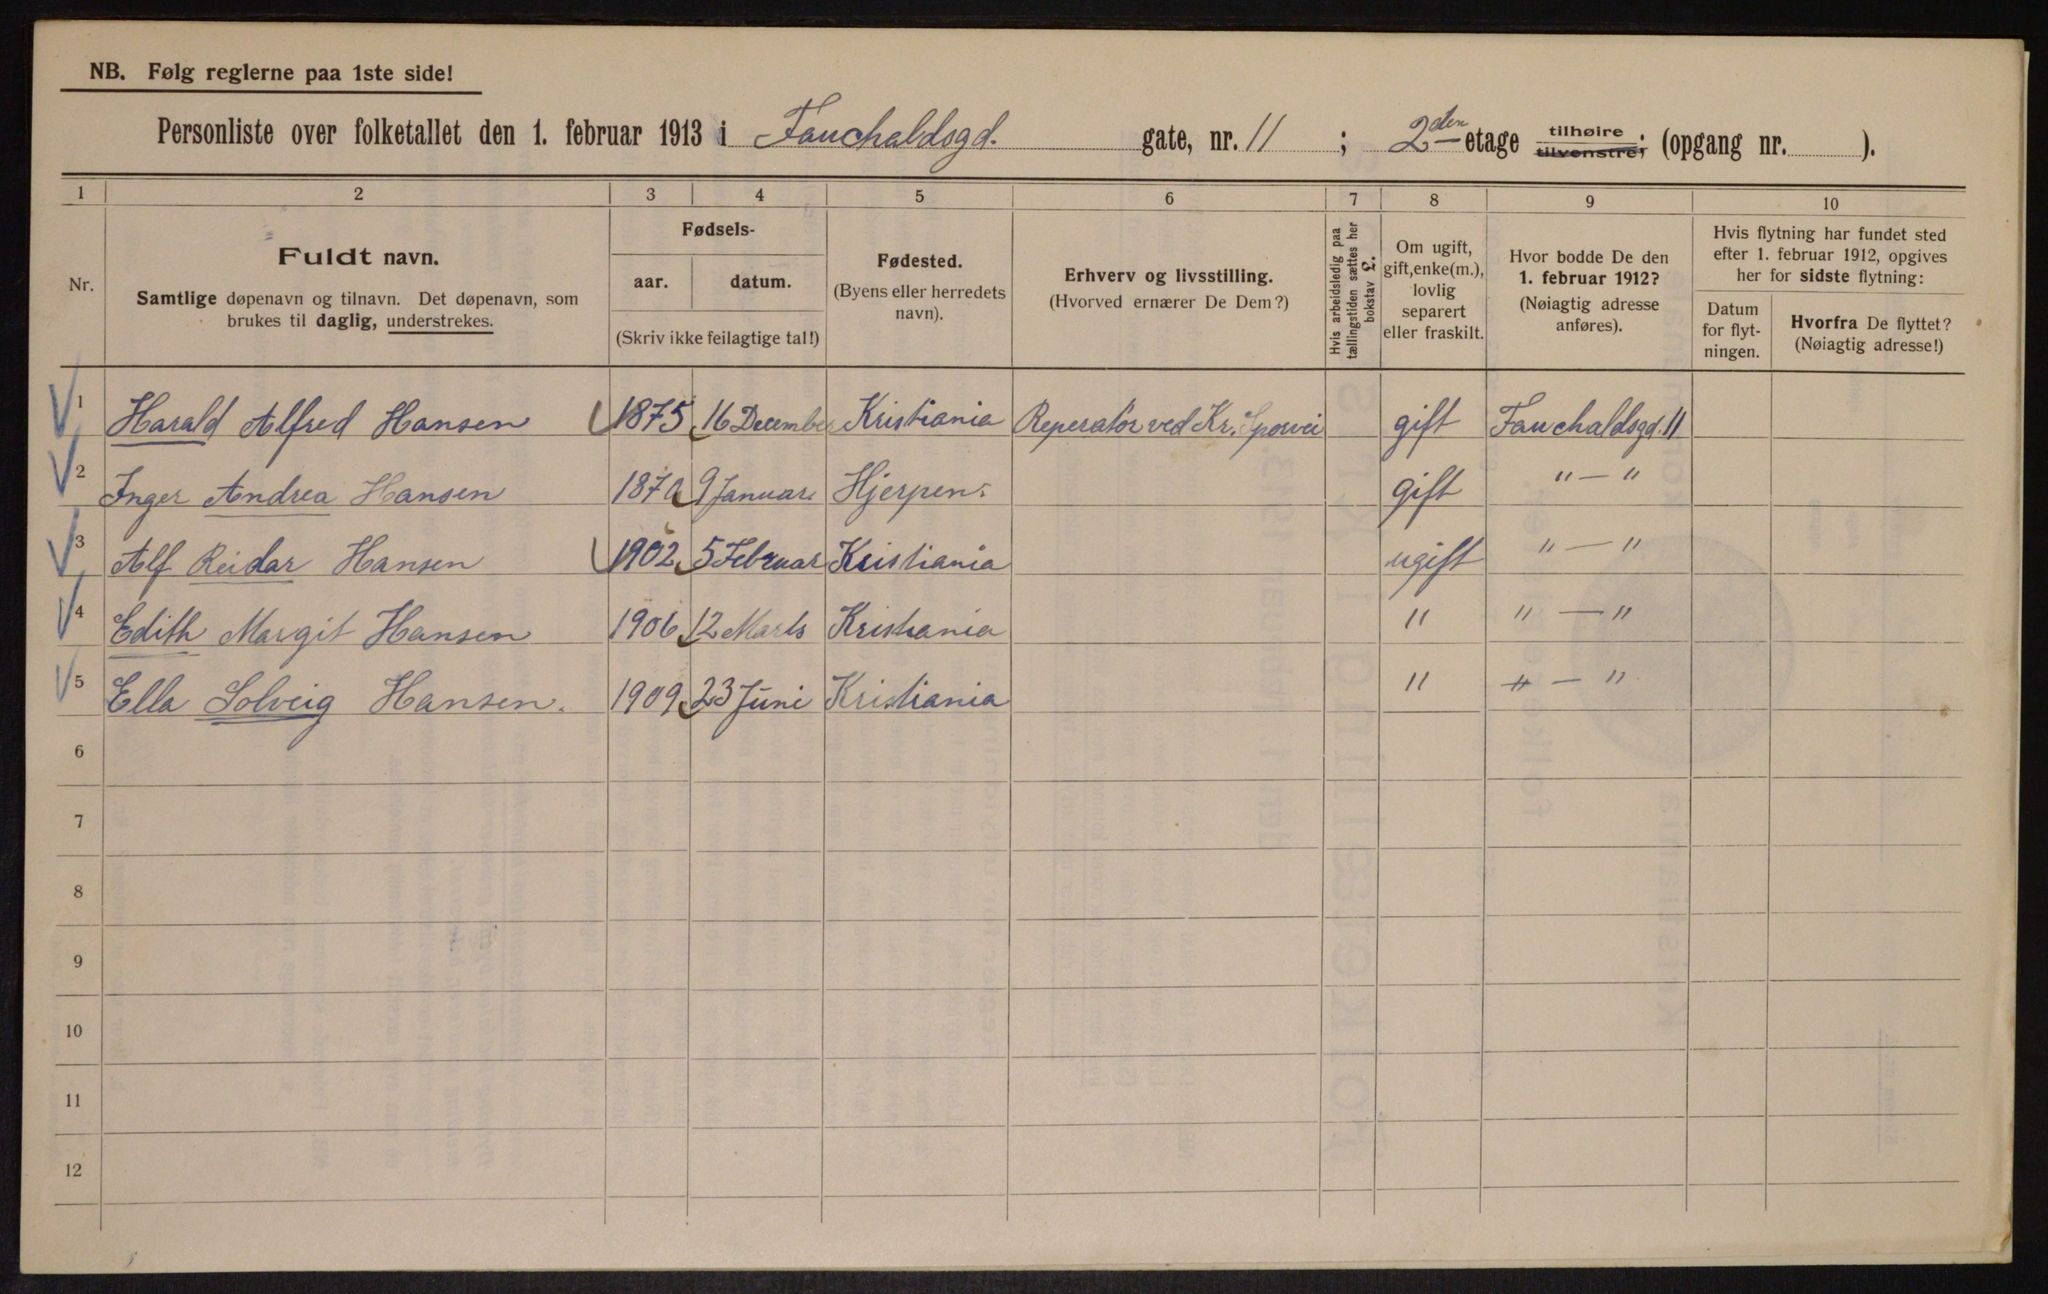 NB. Følg reglerne paa 1ste side!
Personliste over folketallet den 1. februar 1913 i Fauchaldsgd. gate, nr. 11 ; 2den etage tilhøire tilvenstre; (opgang nr. ).
1 2 3 4 5 6 7 8 9 10
Nr.
Fuldt navn.
Samtlige døpenavn og tilnavn. Det døpenavn, som
brukes til daglig, understrekes.
Fødsels-
aar. datum.
(Skriv ikke feilagtige tal!)
Fødested.
(Byens eller herredets
navn).
Erhverv og livsstilling.
(Hvorved ernærer De Dem?)
Hvis arbeidsledig paa
tællingstiden sættes her
bokstav £.
Om ugift,
gift, enke(m.),
lovlig
separert
eller fraskilt.
Hvor bodde De den
1. februar 1912?
(Nøiagtig adresse
anføres).
Hvis flytning har fundet sted
efter 1. februar 1912, opgives
her for sidste flytning:
Datum
for flyt-
ningen.
Hvorfra De flyttet?
(Nøiagtig adresse!)
1 Harald Alfred Hansen 1875 16 December Kristiania Reperatør ved Kr. Sporvei gift Fauchaldsgd. 11
2 Inger Andrea Hansen 9 Januar Hjerpen: gift " — "
3 Alf Reidar Hansen 1902 5 Februar Kristiania ugift " — "
4 Edith Margit Hansen 1906 12 Marts Kristiania " " — "
5 Ella Solveig Hansen. 1909 23 Juni Kristiania " " — "
6
7
8
9
10
11
12